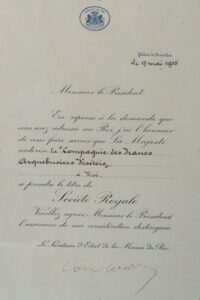 Palais de Bruxelles
Le 17 mai 1935
Monsieur le Président
En réponse à la demande que
vous avez adressée au Roi, j'ai l'honneur
de vous faire savoir que Sa Majesté
autorise la "Compagnie des Francs
Arquebusiers Visétois"
à Visé
à prendre le titre de
Société Royale
Veuillez agréer Monsieur le Président
l'assurance de ma considération distinguée
Le Secrétaire d'Etat de la Maison du Roi